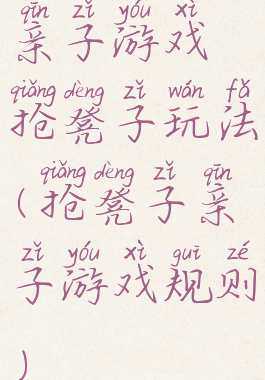 qīn zǐ yóu xì
亲子游戏
qiǎng dèng zǐ wán fǎ
抢凳子玩法
qiǎng dèng zǐ qīn
(抢凳子亲
zǐ yóu xì guī zé
子游戏规则
)